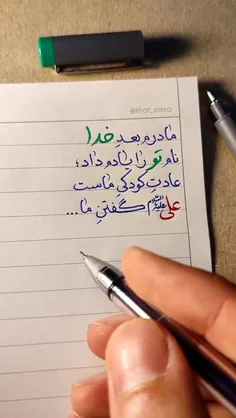 @khat_amza
مادرم بعدِ خدا
نام تو را یادم داد؛
عادتِ کودکیِ ماست
علی ﷺ گفتنِ ما...